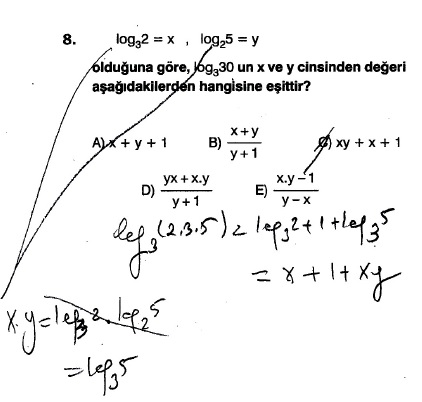 8. log₃2 = x , log₂5 = y
olduğuna göre, log₃30 un x ve y cinsinden değeri
aşağıdakilerden hangisine eşittir?
A) x + y + 1 B) (x+y)/(y+1) C) xy + x + 1
D) (yx + x.y)/(y+1) E) (x.y−1)/(y−x)
log₃(2.3.5) = log₃2 + 1 + log₃5
= x + 1 + xy
x.y = log₃2 . log₂5
= log₃5